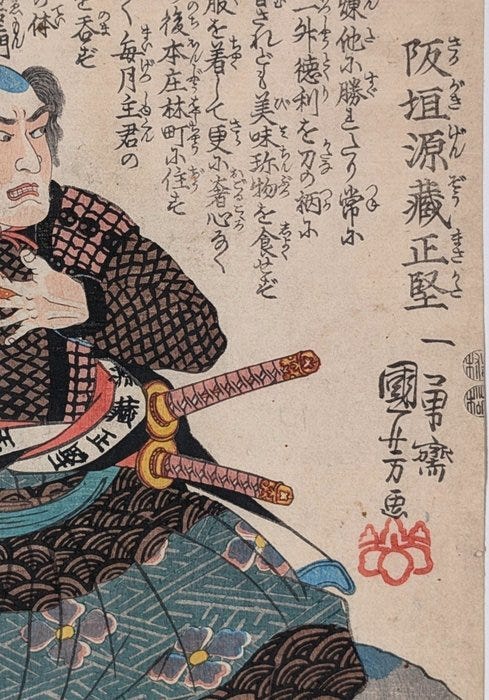 阪垣源藏正堅
一勇齋
國芳画
錬他に勝れたり常に
外徳利を刀の柄に
されども美味珍物を食せず
服を着して更に奢心なく
後本庄林町に住す
く毎月主君の
を呑ず
の体
藏正堅